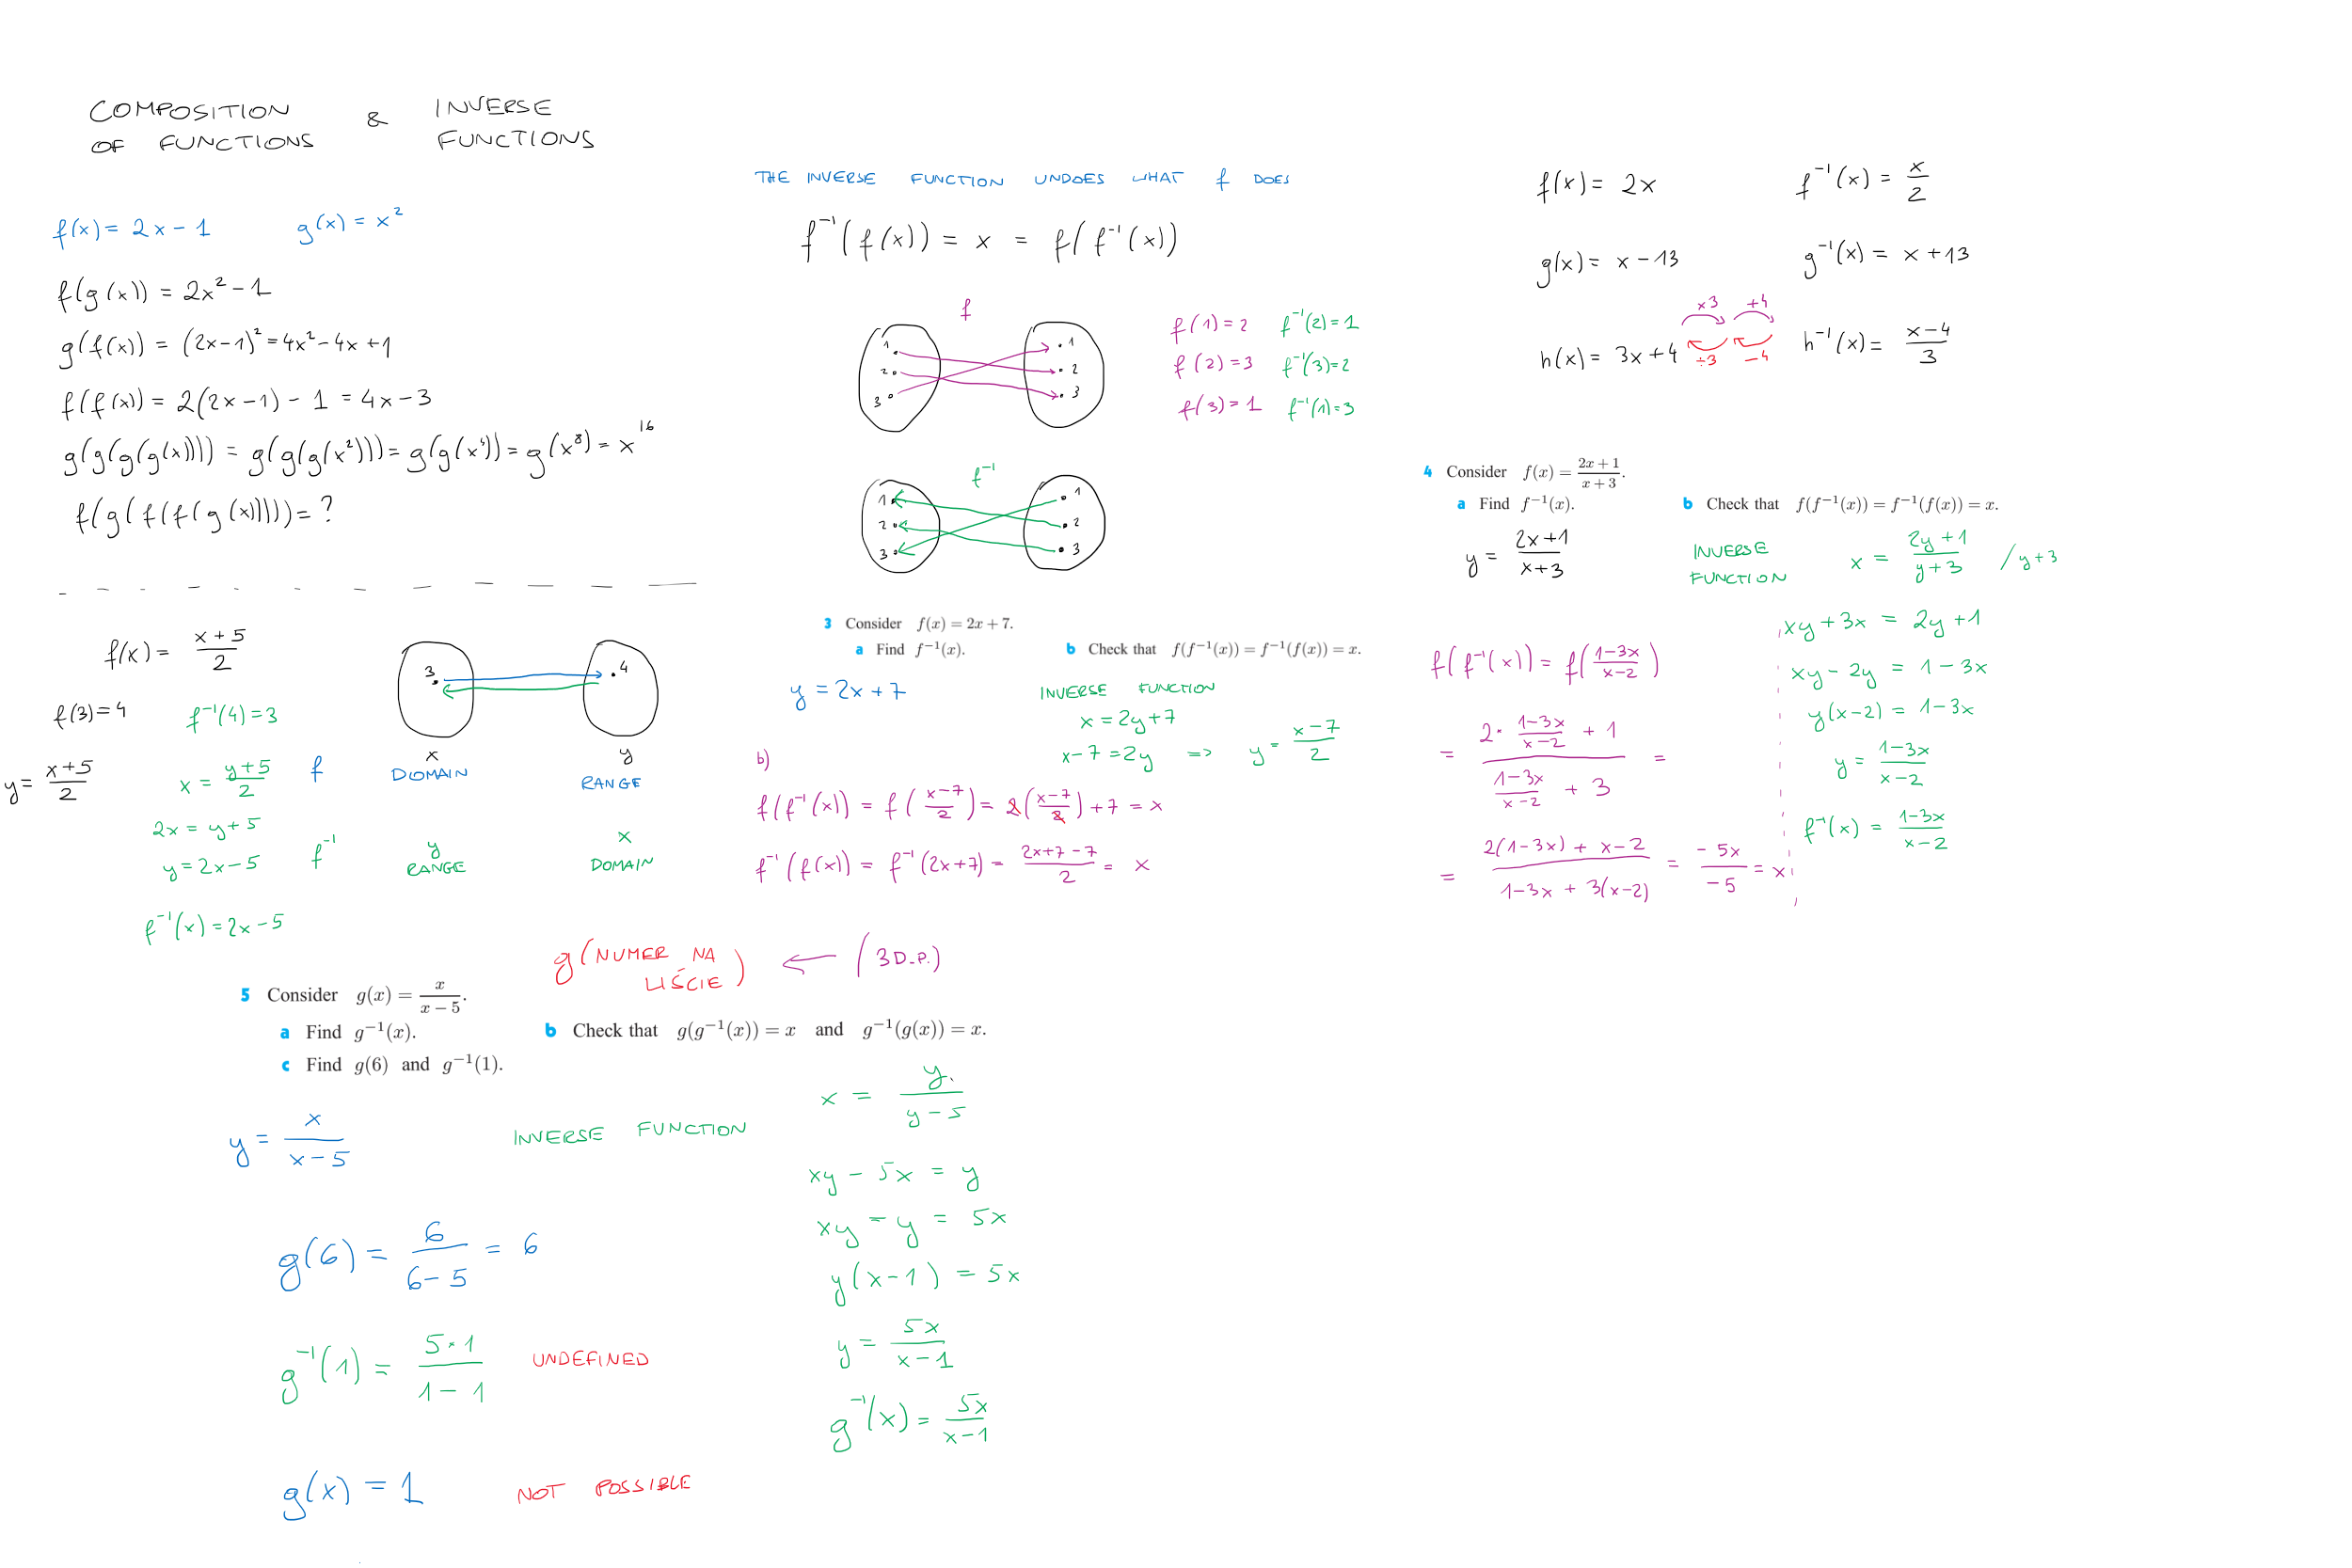 COMPOSITION OF FUNCTIONS & INVERSE FUNCTIONS
f(x) = 2x - 1    g(x) = x²
f(g(x)) = 2x² - 1
g(f(x)) = (2x-1)² = 4x² - 4x + 1
f(f(x)) = 2(2x-1) - 1 = 4x - 3
g(g(g(g(x)))) = g(g(g(x²))) = g(g(x⁴)) = g(x⁸) = x¹⁶
f(g(f(f(g(x))))) = ?
f(x) = (x+5)/2
3    4
f(3) = 4    f⁻¹(4) = 3
x    y
y = (x+5)/2    x = (y+5)/2    f    DOMAIN    RANGE
2x = y+5
y = 2x-5    f⁻¹    y RANGE    x DOMAIN
f⁻¹(x) = 2x-5
THE INVERSE FUNCTION UNDOES WHAT f DOES
f⁻¹(f(x)) = x = f(f⁻¹(x))
f
1    1    f(1) = 2    f⁻¹(2) = 1
2    2    f(2) = 3    f⁻¹(3) = 2
3    3    f(3) = 1    f⁻¹(1) = 3
f⁻¹
1    1
2    2
3    3
3 Consider f(x) = 2x + 7.
a Find f⁻¹(x).    b Check that f(f⁻¹(x)) = f⁻¹(f(x)) = x.
y = 2x + 7    INVERSE FUNCTION
x = 2y+7
x-7 = 2y => y = (x-7)/2
b)
f(f⁻¹(x)) = f((x-7)/2) = 2((x-7)/2) + 7 = x
f⁻¹(f(x)) = f⁻¹(2x+7) = (2x+7-7)/2 = x
f(x) = 2x    f⁻¹(x) = x/2
g(x) = x - 13    g⁻¹(x) = x + 13
×3    +4
h(x) = 3x+4    ÷3    -4    h⁻¹(x) = (x-4)/3
4 Consider f(x) = (2x + 1)/(x + 3).
a Find f⁻¹(x).    b Check that f(f⁻¹(x)) = f⁻¹(f(x)) = x.
y = (2x+1)/(x+3)    INVERSE FUNCTION    x = (2y+1)/(y+3)    /y+3
xy + 3x = 2y + 1
xy - 2y = 1 - 3x
y(x-2) = 1-3x
y = (1-3x)/(x-2)
f⁻¹(x) = (1-3x)/(x-2)
f(f⁻¹(x)) = f((1-3x)/(x-2))
= (2·(1-3x)/(x-2) + 1)/((1-3x)/(x-2) + 3) =
= (2(1-3x) + x-2)/(1-3x + 3(x-2)) = (-5x)/(-5) = x
g(NUMER NA LIŚCIE) ← (3 D.P.)
5 Consider g(x) = x/(x - 5).
a Find g⁻¹(x).    b Check that g(g⁻¹(x)) = x and g⁻¹(g(x)) = x.
c Find g(6) and g⁻¹(1).
y = x/(x-5)    INVERSE FUNCTION    x = y/(y-5)
xy - 5x = y
xy - y = 5x
y(x-1) = 5x
y = 5x/(x-1)
g⁻¹(x) = 5x/(x-1)
g(6) = 6/(6-5) = 6
g⁻¹(1) = (5·1)/(1-1)    UNDEFINED
g(x) = 1    NOT POSSIBLE